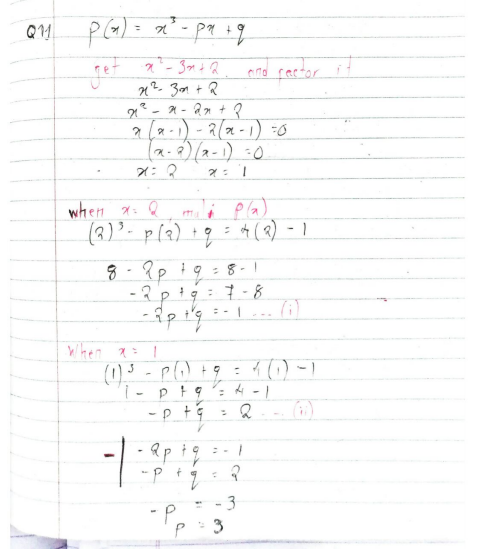 Q11 p(x) = x³ - px + q
get x² - 3x + 2 and factor it
x² - 3x + 2
x² - x - 2x + 2
x(x-1) - 2(x-1) = 0
(x-2)(x-1) = 0
x = 2 x = 1
when x = 2, p(x)
(2)³ - p(2) + q = 4(2) - 1
8 - 2p + q = 8 - 1
-2p + q = 7 - 8
-2p + q = -1 ... (i)
When x = 1
(1)³ - p(1) + q = 4(1) - 1
1 - p + q = 4 - 1
-p + q = 2 ... (ii)
- | -2p + q = -1
-p + q = 2
-p = -3
p = 3